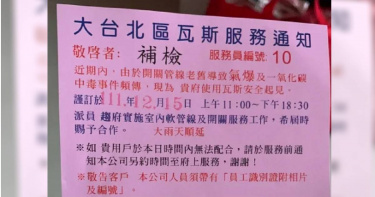 大台北區瓦斯服務通知
敬啓者： 補檢 服務員編號：10
近期內，由於開關管線老舊導致氣爆及一氧化碳
中毒事件頻傳，現為 貴府使用瓦斯安全起見。
謹訂於111年12月15日 上午11:00~下午18:30
派員 趨府實施室內軟管線及開關服務工作，希屆時
賜予合作。 大雨天順延
※如 貴用戶於本日時間內無法配合，請於服務前通
知本公司另約時間至府上服務，謝謝！
※敬告客戶 本公司人員須帶有「員工識別證附相片
及編號」。